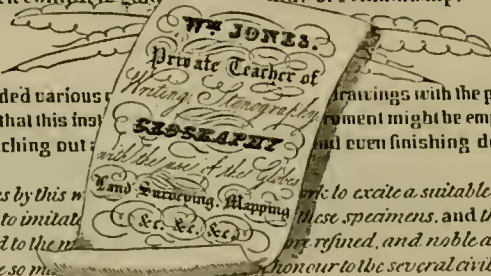 Wm JONES.
Private Teacher of
Writing, Stenography,
GEOGRAPHY
with the use of the Globes
Land Surveying, Mapping
&c. &c. &c.
various drawings with the
that this might be
out and even finishing
by this to excite a suitable
to these specimens, and
to the refined, and noble
so honour to the several